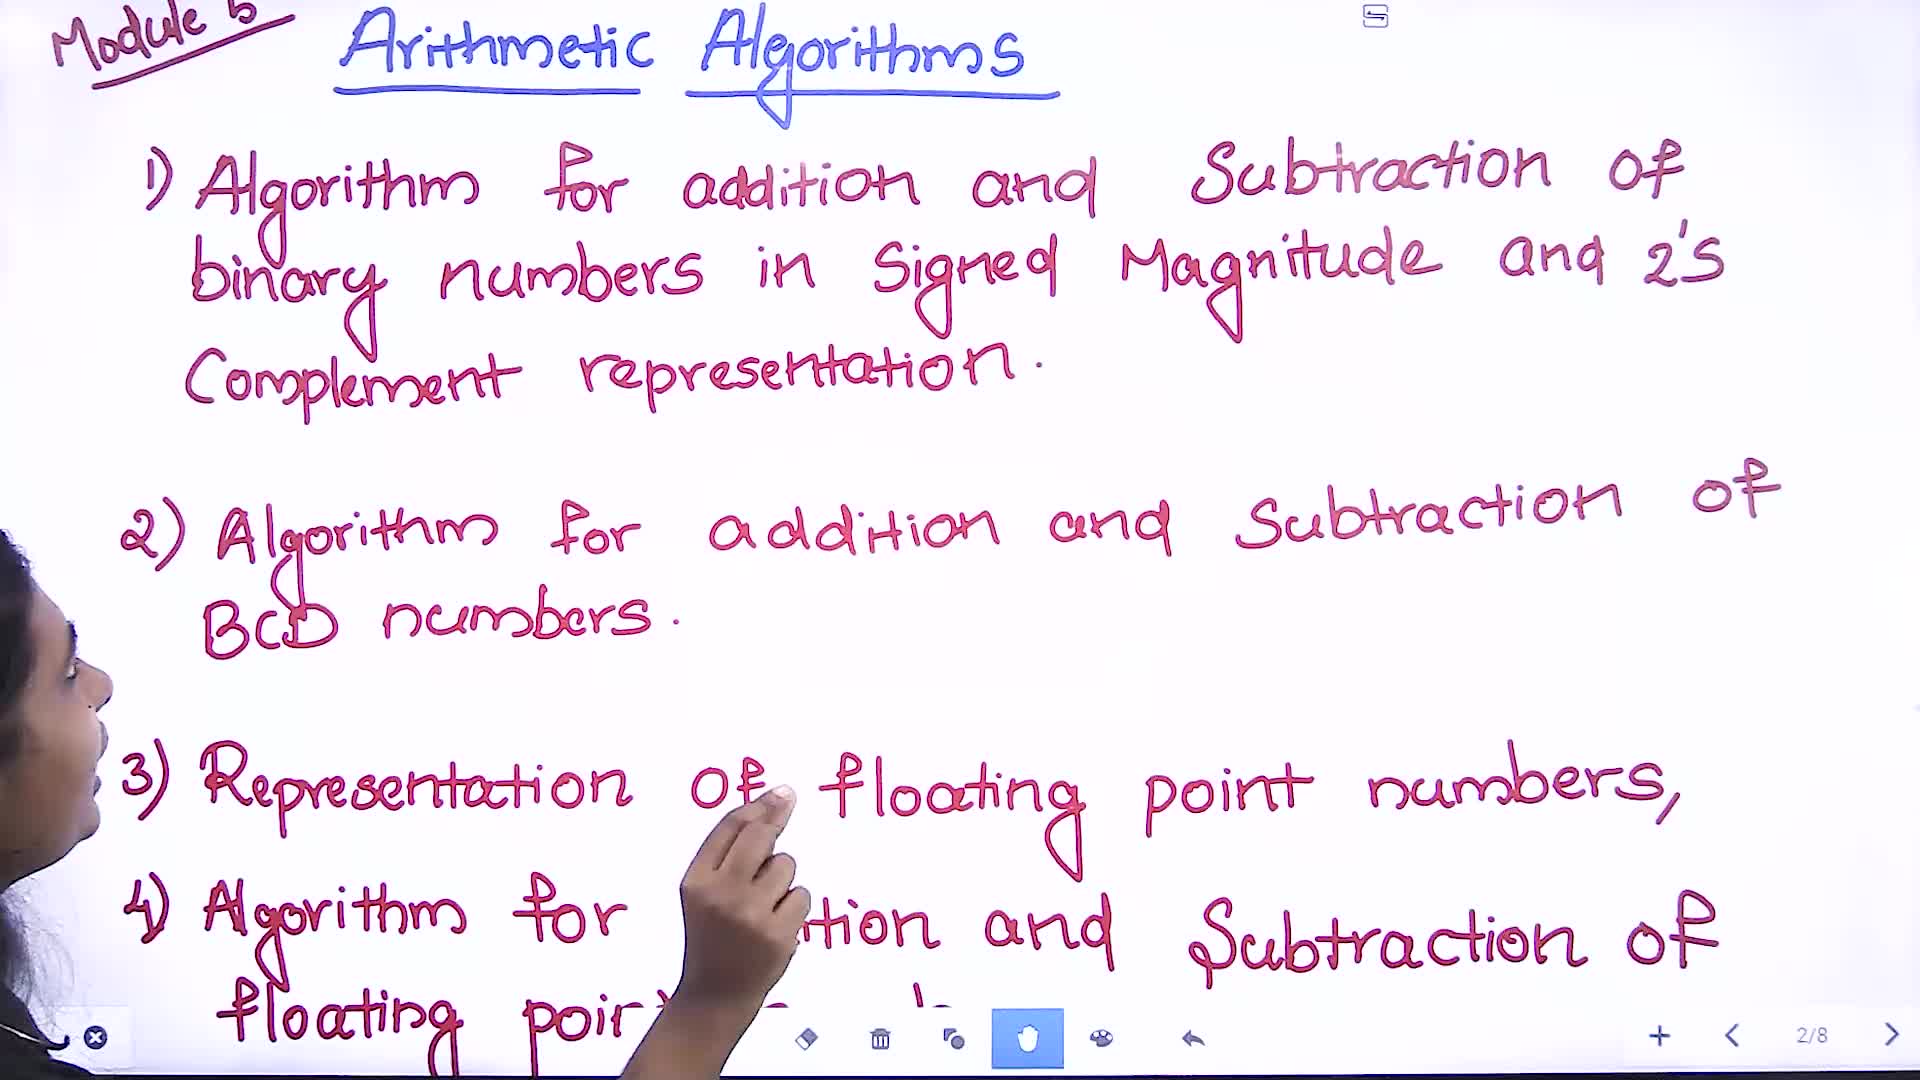 Module 5
Arithmetic Algorithms
1) Algorithm for addition and Subtraction of
binary numbers in Signed Magnitude and 2's
Complement representation.
2) Algorithm for addition and Subtraction of
BCD numbers.
3) Representation of floating point numbers,
4) Algorithm for and Subtraction of
floating
2/8